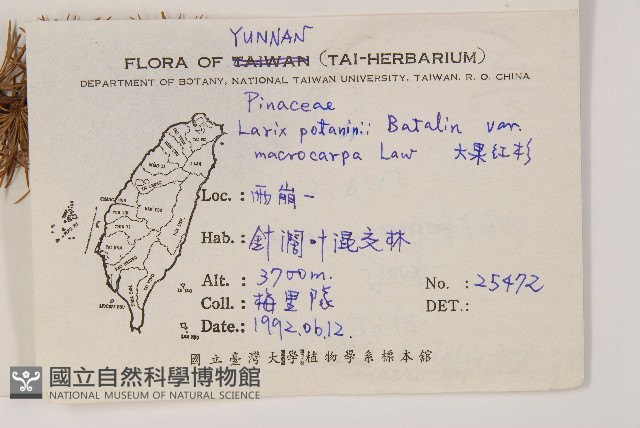 YUNNAN
FLORA OF TAIWAN (TAI-HERBARIUM)
DEPARTMENT OF BOTANY, NATIONAL TAIWAN UNIVERSITY, TAIWAN. R. O. CHINA
Pinaceae
Larix potaninii Batalin var.
macrocarpa Law 大果红杉
Loc.: 雨崩一
Hab.: 針濶叶混交林
Alt.: 3700m.
No.: 25472
Coll.: 梅里隊
DET.:
Date: 1992.06.12.
國立臺灣大學植物學系標本館
國立自然科學博物館
NATIONAL MUSEUM OF NATURAL SCIENCE